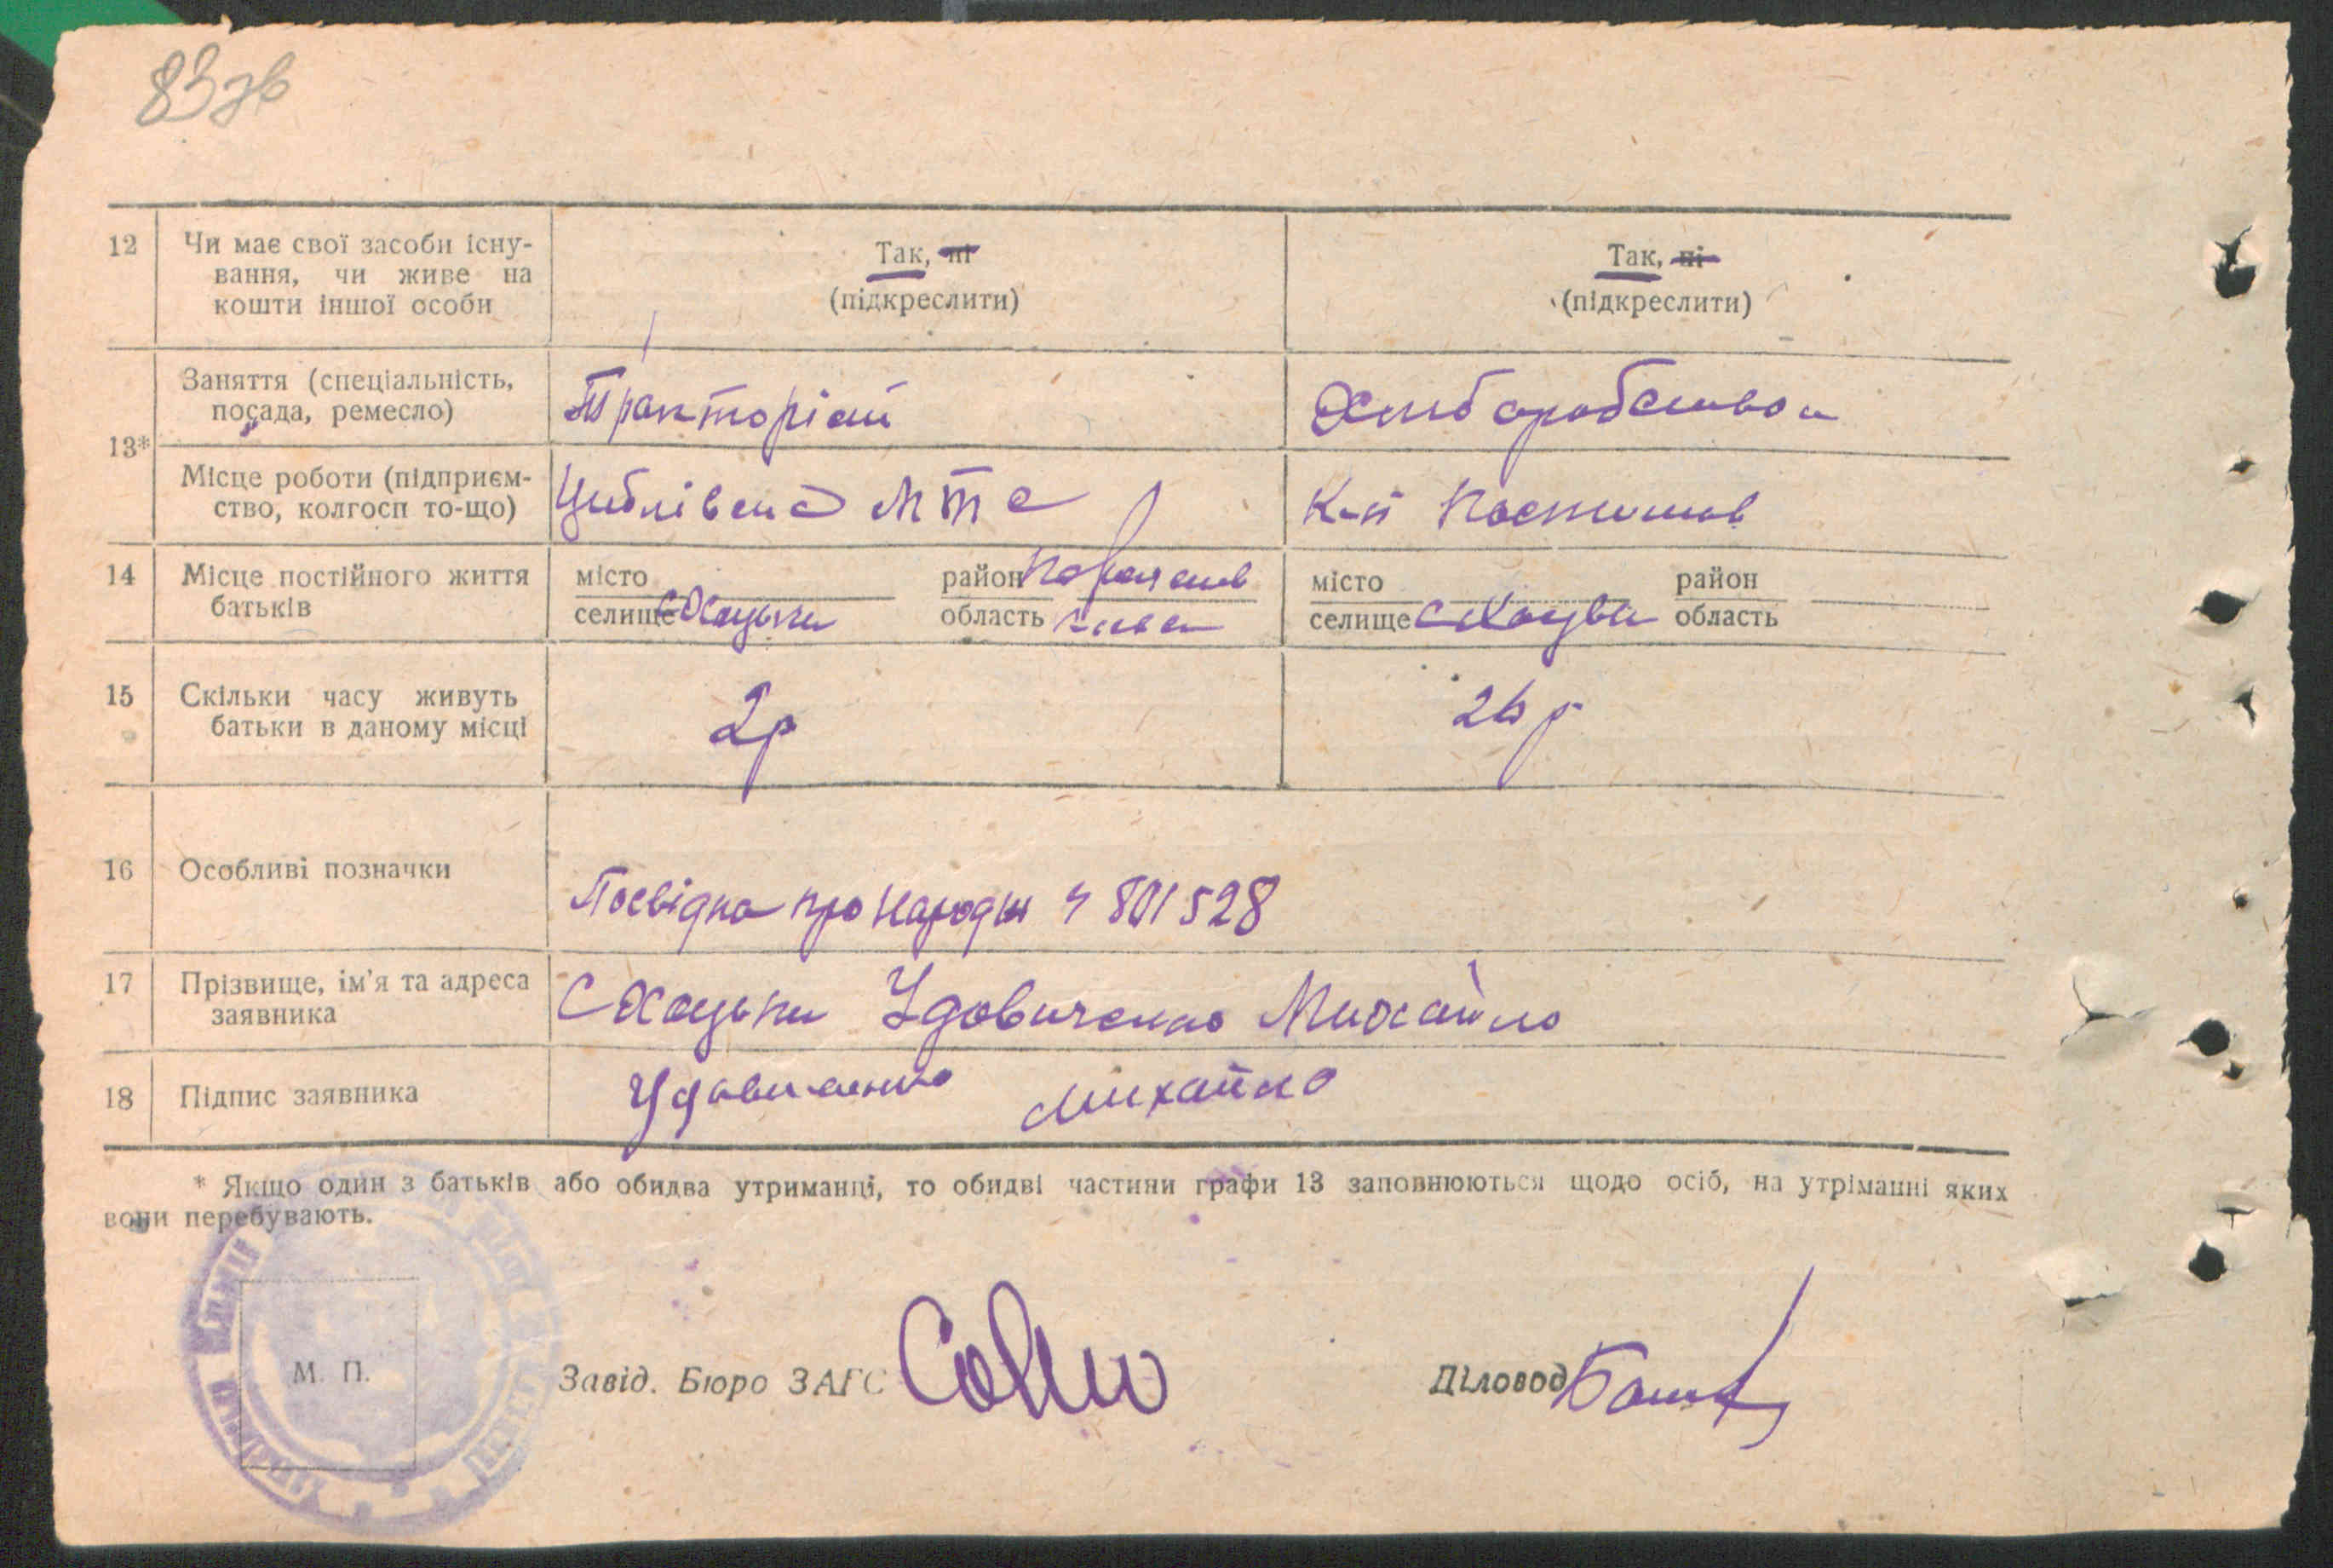 83зв
12 Чи має свої засоби існу-
вання, чи живе на
кошти іншої особи
Так, ні
(підкреслити)
Так, ні
(підкреслити)
13*
Заняття (спеціальність,
посада, ремесло)
Тракторіст
Хліборобство
Місце роботи (підприєм-
ство, колгосп то-що)
Циблівська МТС
К-п Постишев
14 Місце постійного життя
батьків
місто
селище с Хоцьки
район
область Київ
місто
селище с Хоцьки
район
область
15 Скільки часу живуть
батьки в даному місці
2р
26 р
16 Особливі позначки
Посвідка про народж Ч 801528
17 Прізвище, ім'я та адреса
заявника
С Хоцьки Удовиченко Михайло
18 Підпис заявника
Удовиченко Михайло
* Якщо один з батьків або обидва утриманці, то обидві частини графи 13 заповнюються щодо осіб, на утріманні яких
вони перебувають.
М. П.
Завід. Бюро ЗАГС
Діловод